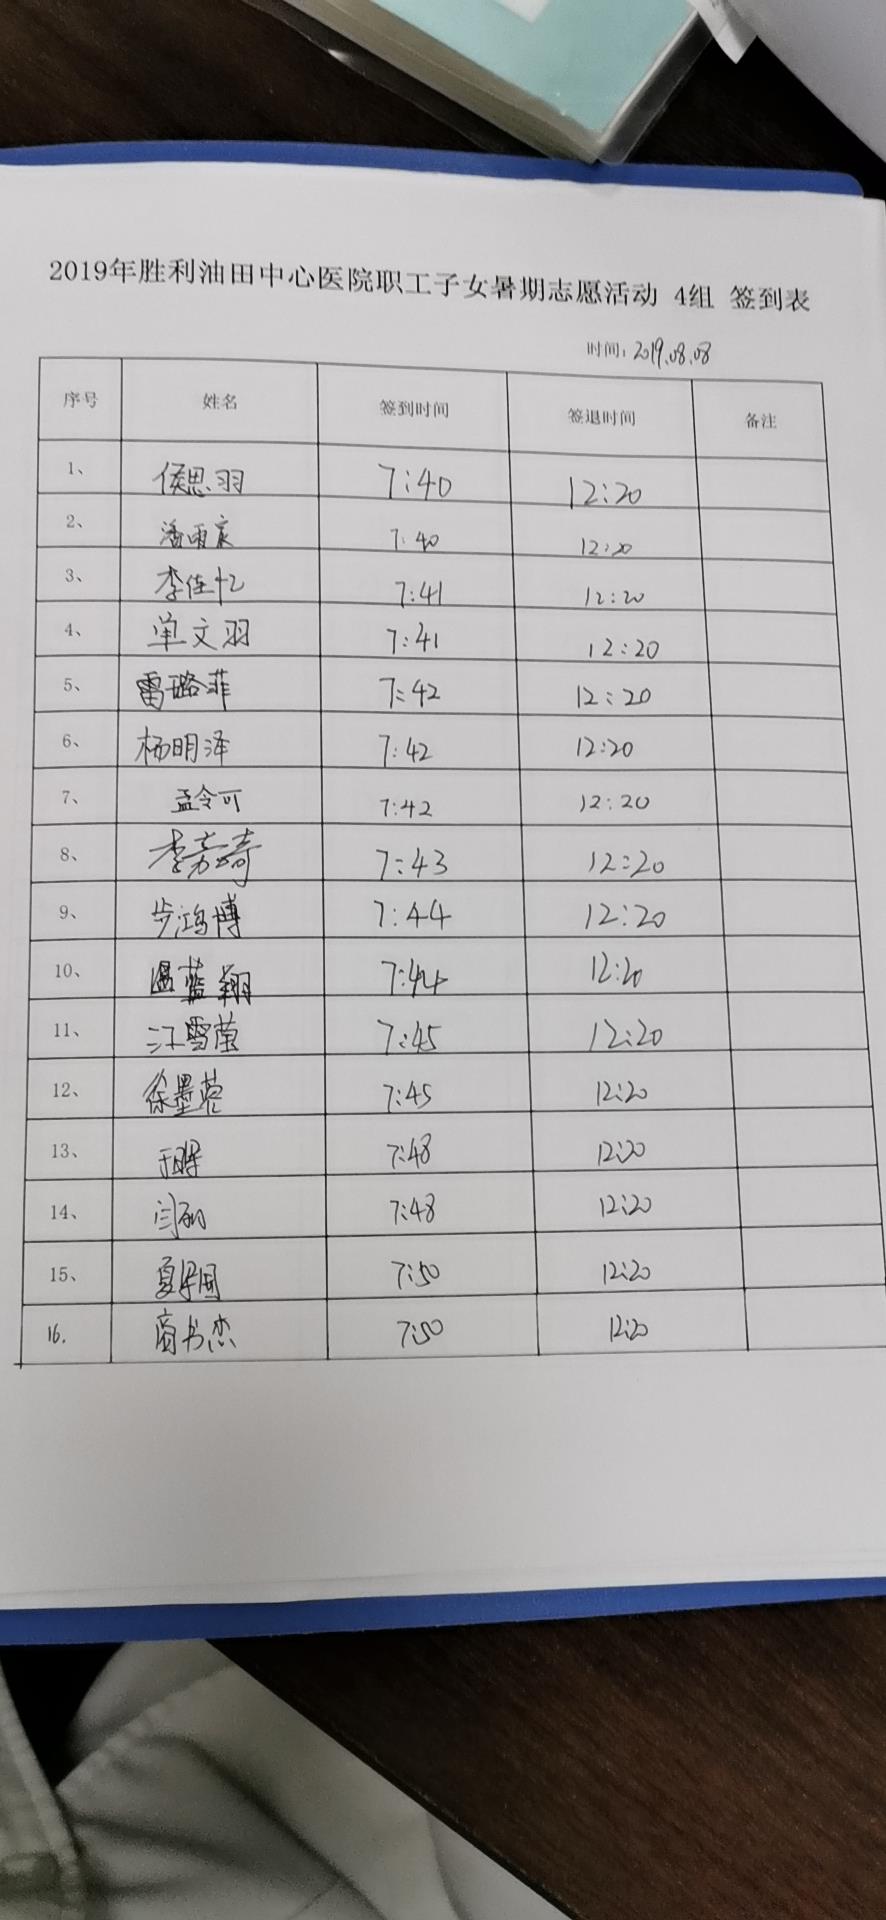 2019年胜利油田中心医院职工子女暑期志愿活动 4组 签到表
时间：2019.08.08
序号 姓名 签到时间 签退时间 备注
1、 侯思羽 7:40 12:20
2、 潘雨辰 7:40 12:20
3、 李佳忆 7:41 12:20
4、 单文羽 7:41 12:20
5、 雷璐菲 7:42 12:20
6、 杨明泽 7:42 12:20
7、 孟令可 7:42 12:20
8、 李芳琦 7:43 12:20
9、 步鸿博 7:44 12:20
10、 温蓝翔 7:44 12:20
11、 江雪莹 7:45 12:20
12、 徐墨蓉 7:45 12:20
13、 7:48 12:20
14、 7:48 12:20
15、 7:50 12:20
16. 商书杰 7:50 12:20